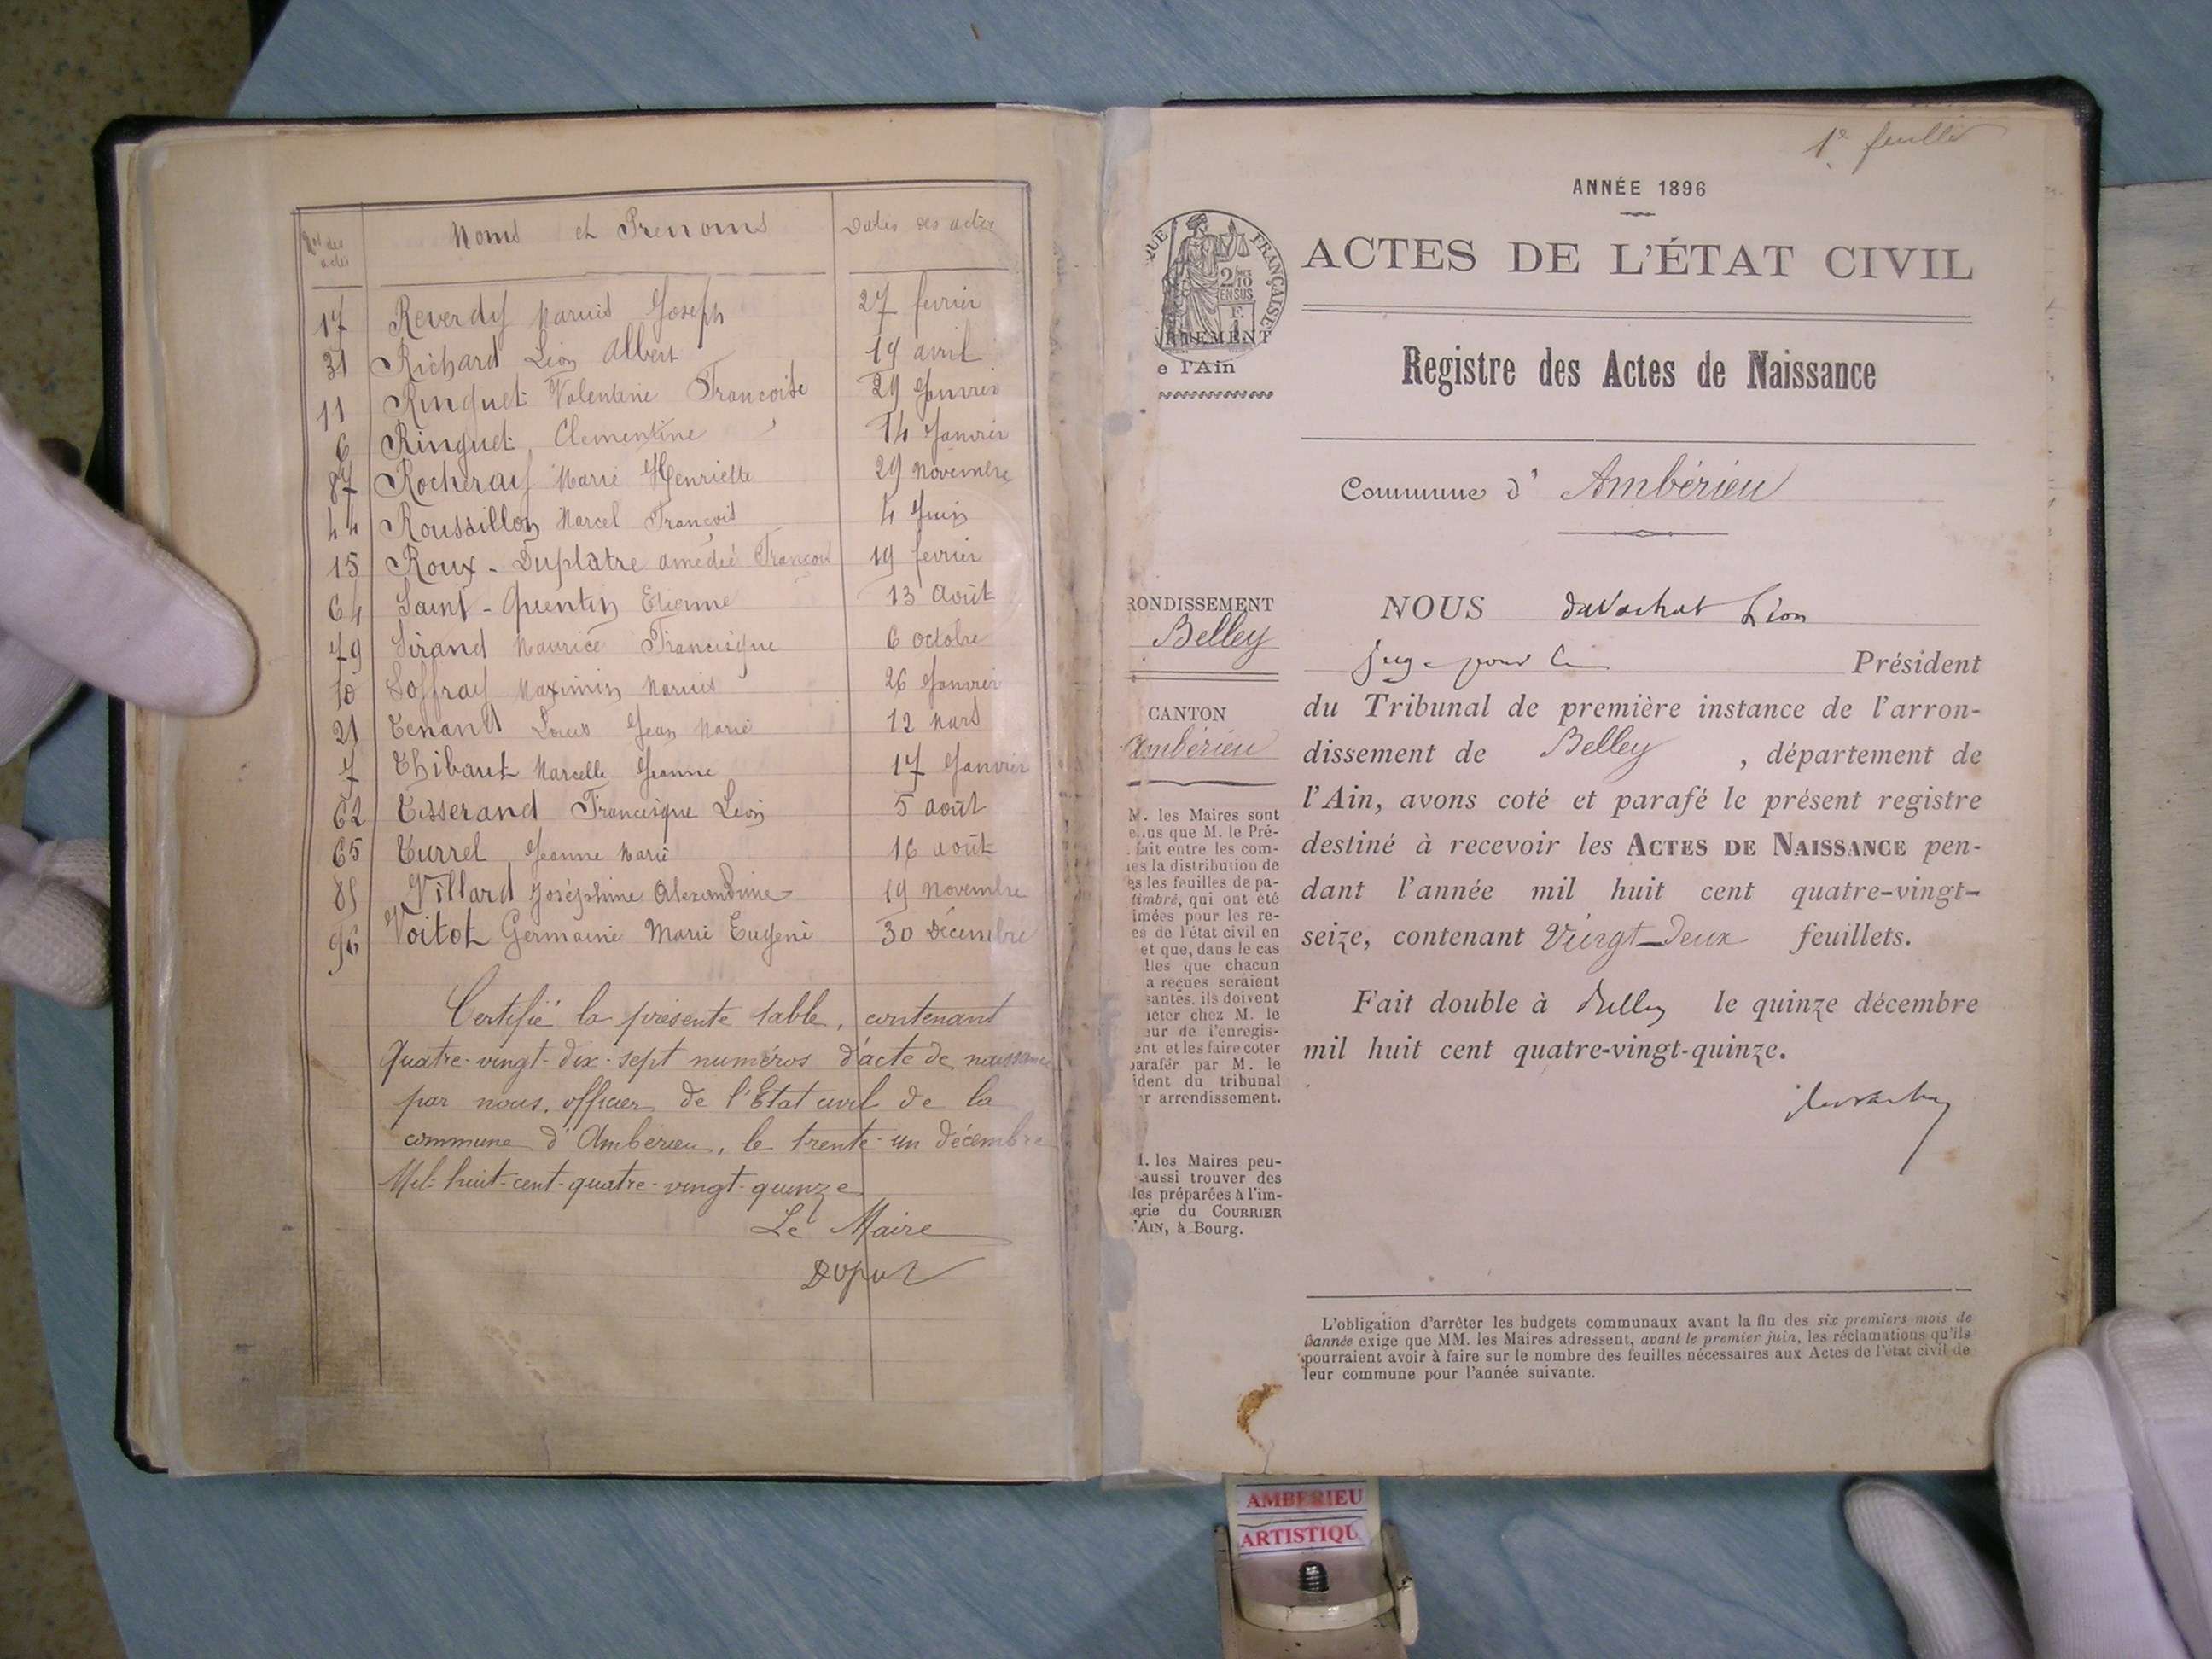 Nos des actes Noms et Prénoms Dates des actes
17 Reverdy Marius Joseph 27 fevrier
31 Richard Léon Albert 19 avril
11 Ringuet Valentine Francoise 29 Janvier
6 Ringuet Clementine 14 Janvier
87 Rocheray Marie Henriette 29 Novembre
44 Roussillon Marcel François 4 Juin
15 Roux - Duplatre amédée Francois 19 fevrier
64 Saint - Quentin Etienne 13 Août
79 Sirand Maurice Francisque 6 octobre
10 Soffray Maximin Marius 26 Janvier
21 Tenand Louis Jean Marie 12 Mars
7 Thibaut Marcelle Jeanne 17 Janvier
62 Tisserand Francisque Léon 5 août
65 Turrel Jeanne Marie 16 août
85 Villard Joséphine Alexandrine 19 Novembre
96 Voitot Germaine Marie Eugenie 30 Décembre
Certifié la présente table, contenant
quatre-vingt-dix-sept numéros d'acte de naissance
par nous, officier de l'Etat civil de la
commune d'Amberieu, le trente-un décembre
Mil-huit-cent-quatre-vingt-quinze
Le Maire
1e feuillet
ANNÉE 1896
ACTES DE L'ÉTAT CIVIL
QUE FRANÇAISE
2/10 EN SUS
e l'Ain
Registre des Actes de Naissance
Commune d' Ambérieu
RONDISSEMENT
Belley
CANTON
Ambérieu
M. les Maires sont
us que M. le Pré-
fait entre les com-
es la distribution de
es les feuilles de pa-
timbré, qui ont été
imées pour les re-
es de l'état civil en
et que, dans le cas
lles que chacun
a reçues seraient
santes, ils doivent
eter chez M. le
eur de l'enregis-
ent et les faire coter
parafér par M. le
ident du tribunal
r arrondissement.
M. les Maires peu-
aussi trouver des
les préparées à l'im-
erie du COURRIER
'AIN, à Bourg.
NOUS Léon
juge pour le Président
du Tribunal de première instance de l'arron-
dissement de Belley , département de
l'Ain, avons coté et parafé le présent registre
destiné à recevoir les ACTES DE NAISSANCE pen-
dant l'année mil huit cent quatre-vingt-
seize, contenant Vingt-Deux feuillets.
Fait double à Belley le quinze décembre
mil huit cent quatre-vingt-quinze.
L'obligation d'arrêter les budgets communaux avant la fin des six premiers mois de
l'année exige que MM. les Maires adressent, avant le premier juin, les réclamations qu'ils
pourraient avoir à faire sur le nombre des feuilles nécessaires aux Actes de l'état civil de
leur commune pour l'année suivante.
AMBERIEU
ARTISTIQU